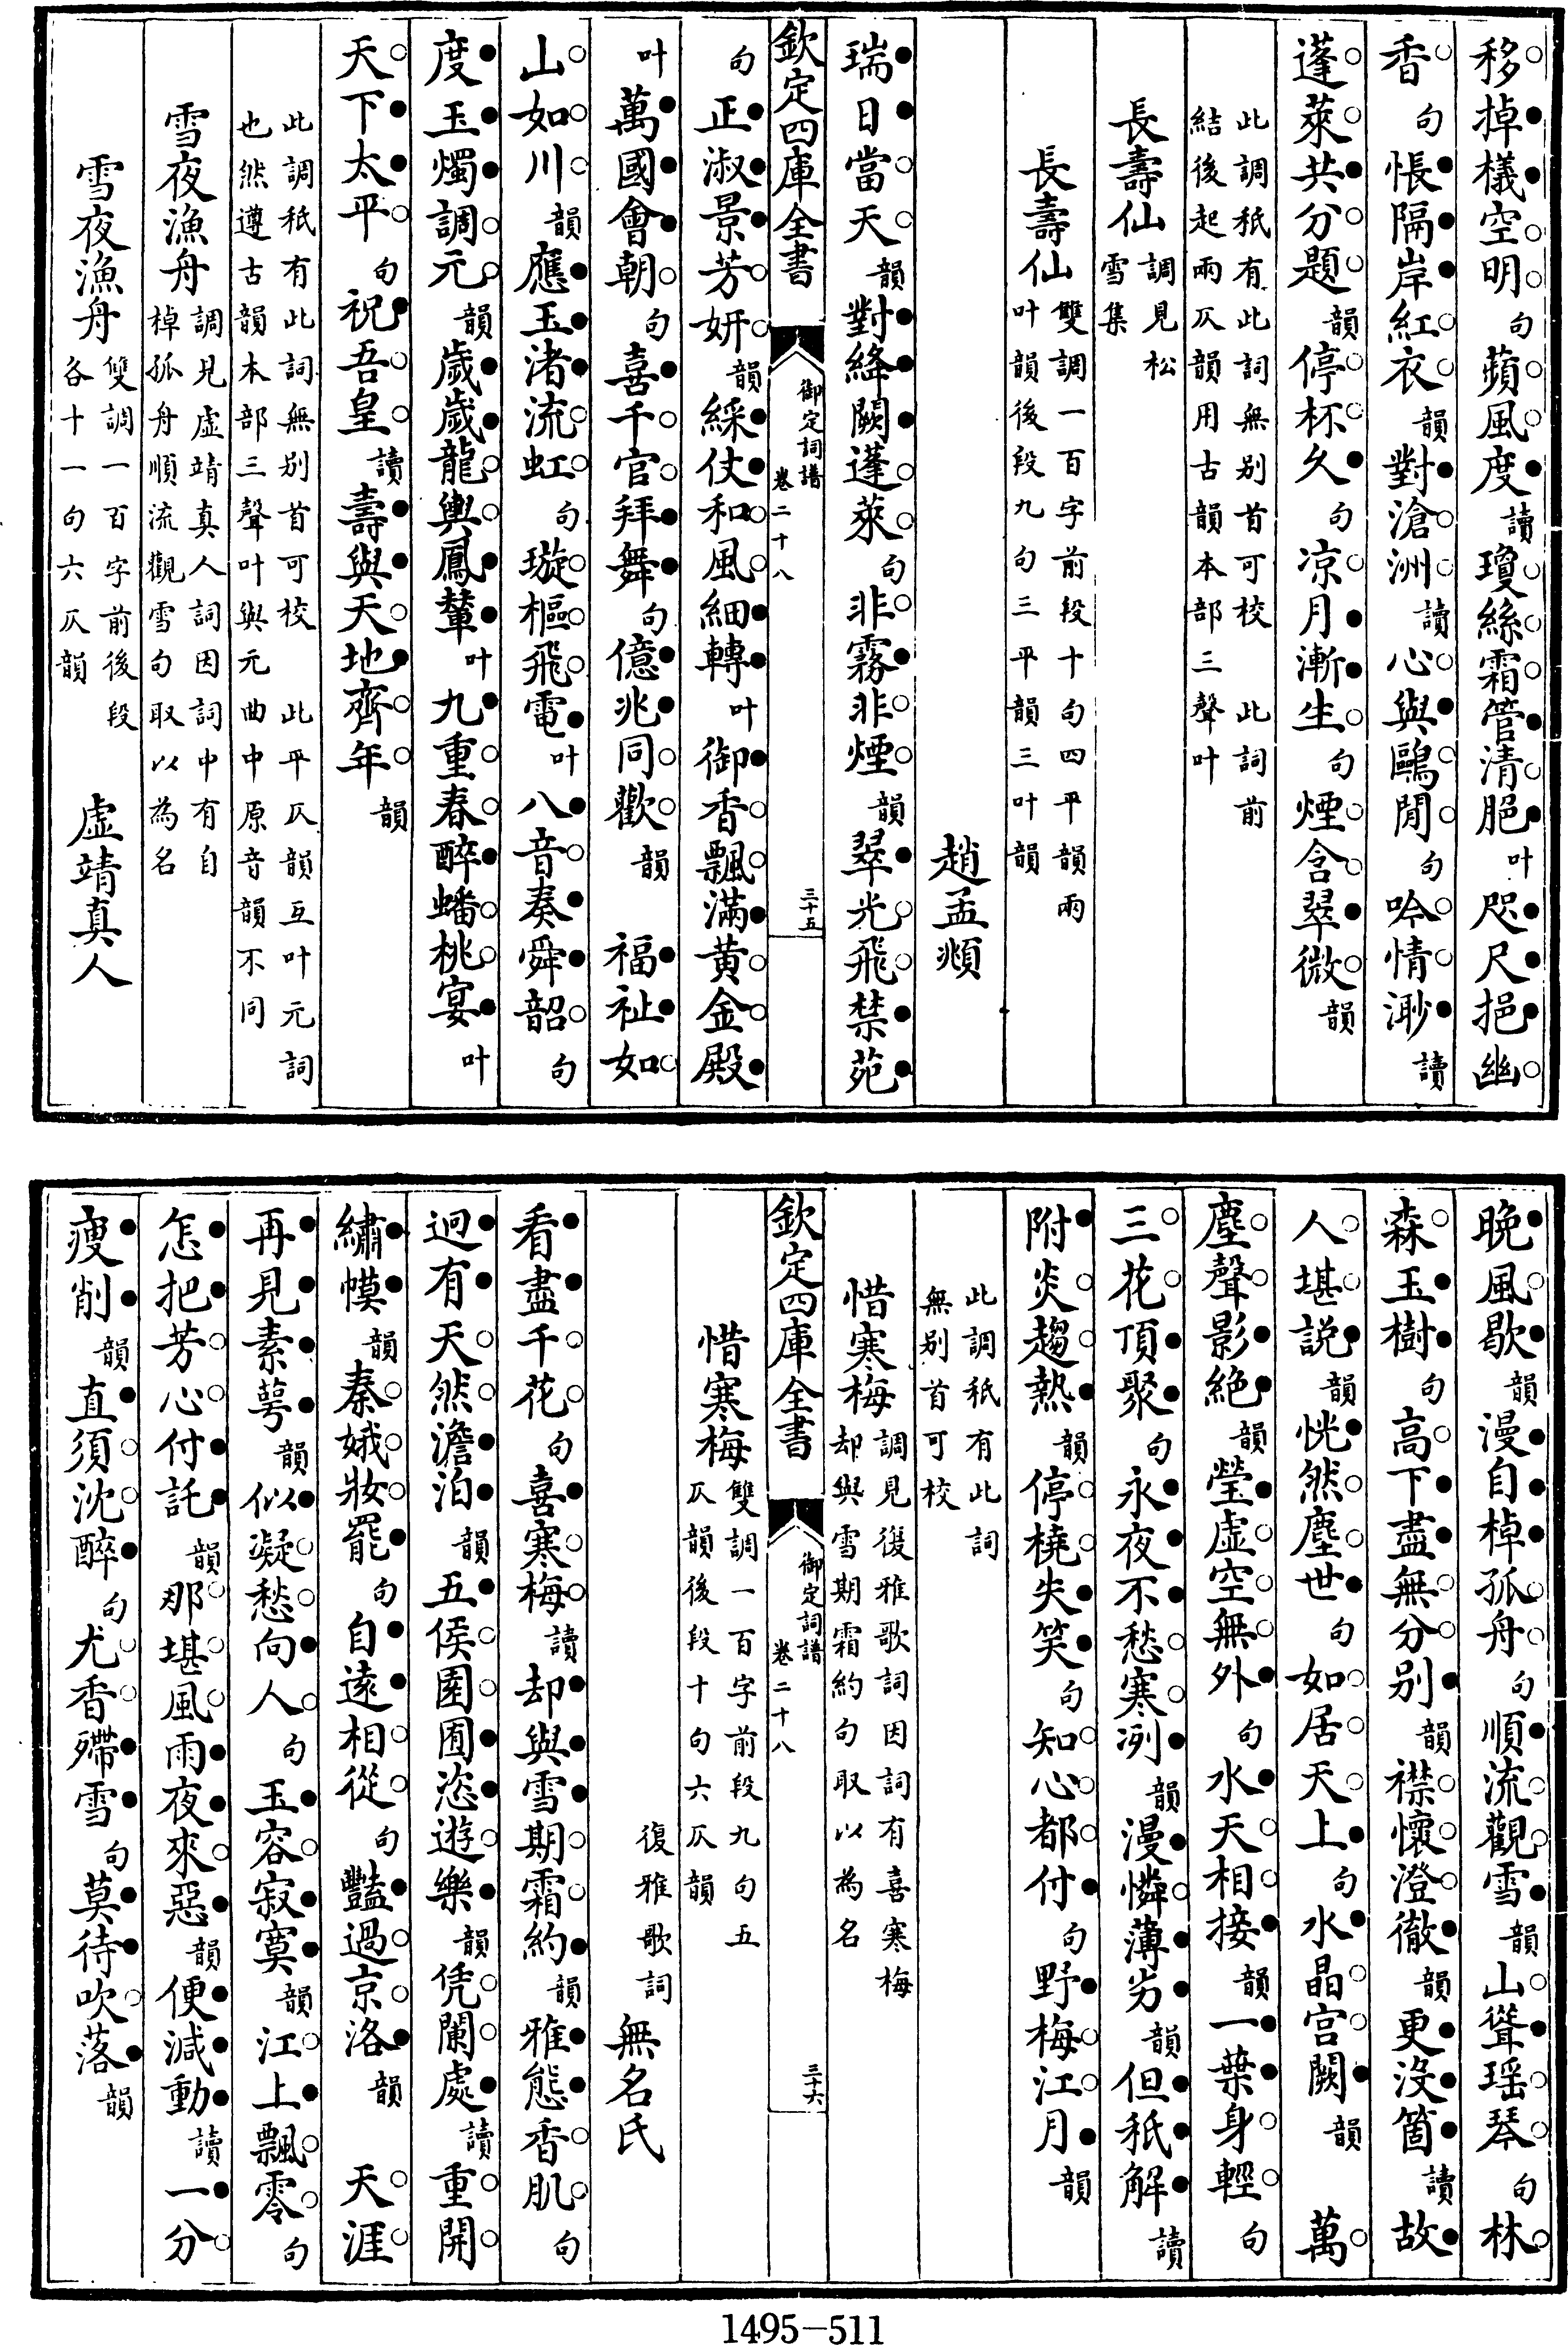 移掉檥空明句蘋風度讀瓊絲霜管清脆叶咫尺挹幽
香句悵隔岸紅衣韻對滄洲讀心與鷗閒句吟情渺讀
蓬萊共分題韻停杯久句凉月漸生句煙含翠微韻
此調秖有此詞無别首可校　此詞前
結後起兩仄韻用古韻本部三聲叶
長壽仙調見松
雪集
長壽仙雙調一百字前段十句四平韻兩
叶韻後段九句三平韻三叶韻
趙孟頫
瑞日當天韻對絳闕蓬萊句非霧非煙韻翠光飛禁苑
欽定四庫全書　御定詞譜　卷二十八　三十五
句正淑景芳妍韻綵仗和風細轉叶御香飄滿黄金殿
叶萬國會朝句喜千官拜舞句億兆同歡韻　福祉如
山如川韻應玉渚流虹句璇樞飛電叶八音奏舜韶句
度玉燭調元韻歲歲龍輿鳳輦叶九重春醉蟠桃宴叶
天下太平句祝吾皇讀壽與天地齊年韻
此調秖有此詞無别首可校　此平仄韻互叶元詞
也然遵古韻本部三聲叶與元曲中原音韻不同
雪夜漁舟調見虚靖真人詞因詞中有自
棹孤舟順流觀雪句取以為名
雪夜漁舟雙調一百字前後段
各十一句六仄韻　虚靖真人
晚風歇韻漫自棹孤舟句順流觀雪韻山聳瑶琴句林
森玉樹句高下盡無分别韻襟懷澄徹韻更没箇讀故
人堪説韻恍然塵世句如居天上句水晶宫闕韻　萬
塵聲影絶韻瑩虚空無外句水天相接韻一葉身輕句
三花頂聚句永夜不愁寒冽韻漫憐薄劣韻但秖解讀
附炎趨熱韻停橈失笑句知心都付句野梅江月韻
此調秖有此詞
無别首可校
惜寒梅調見復雅歌詞因詞有喜寒梅
却與雪期霜約句取以為名
欽定四庫全書　御定詞譜　卷二十八　三十六
惜寒梅雙調一百字前段九句五
仄韻後段十句六仄韻
復雅歌詞　無名氏
看盡千花句喜寒梅讀却與雪期霜約韻雅態香肌句
迥有天然澹泊韻五侯園囿恣遊樂韻凭闌處讀重開
繡幙韻秦娥妝罷句自遠相從句豔過京洛韻　天涯
再見素萼韻似凝愁向人句玉容寂寞韻江上飄零句
怎把芳心付託韻那堪風雨夜來惡韻便減動讀一分
瘦削韻直須沈醉句尤香殢雪句莫待吹落韻
1495-511